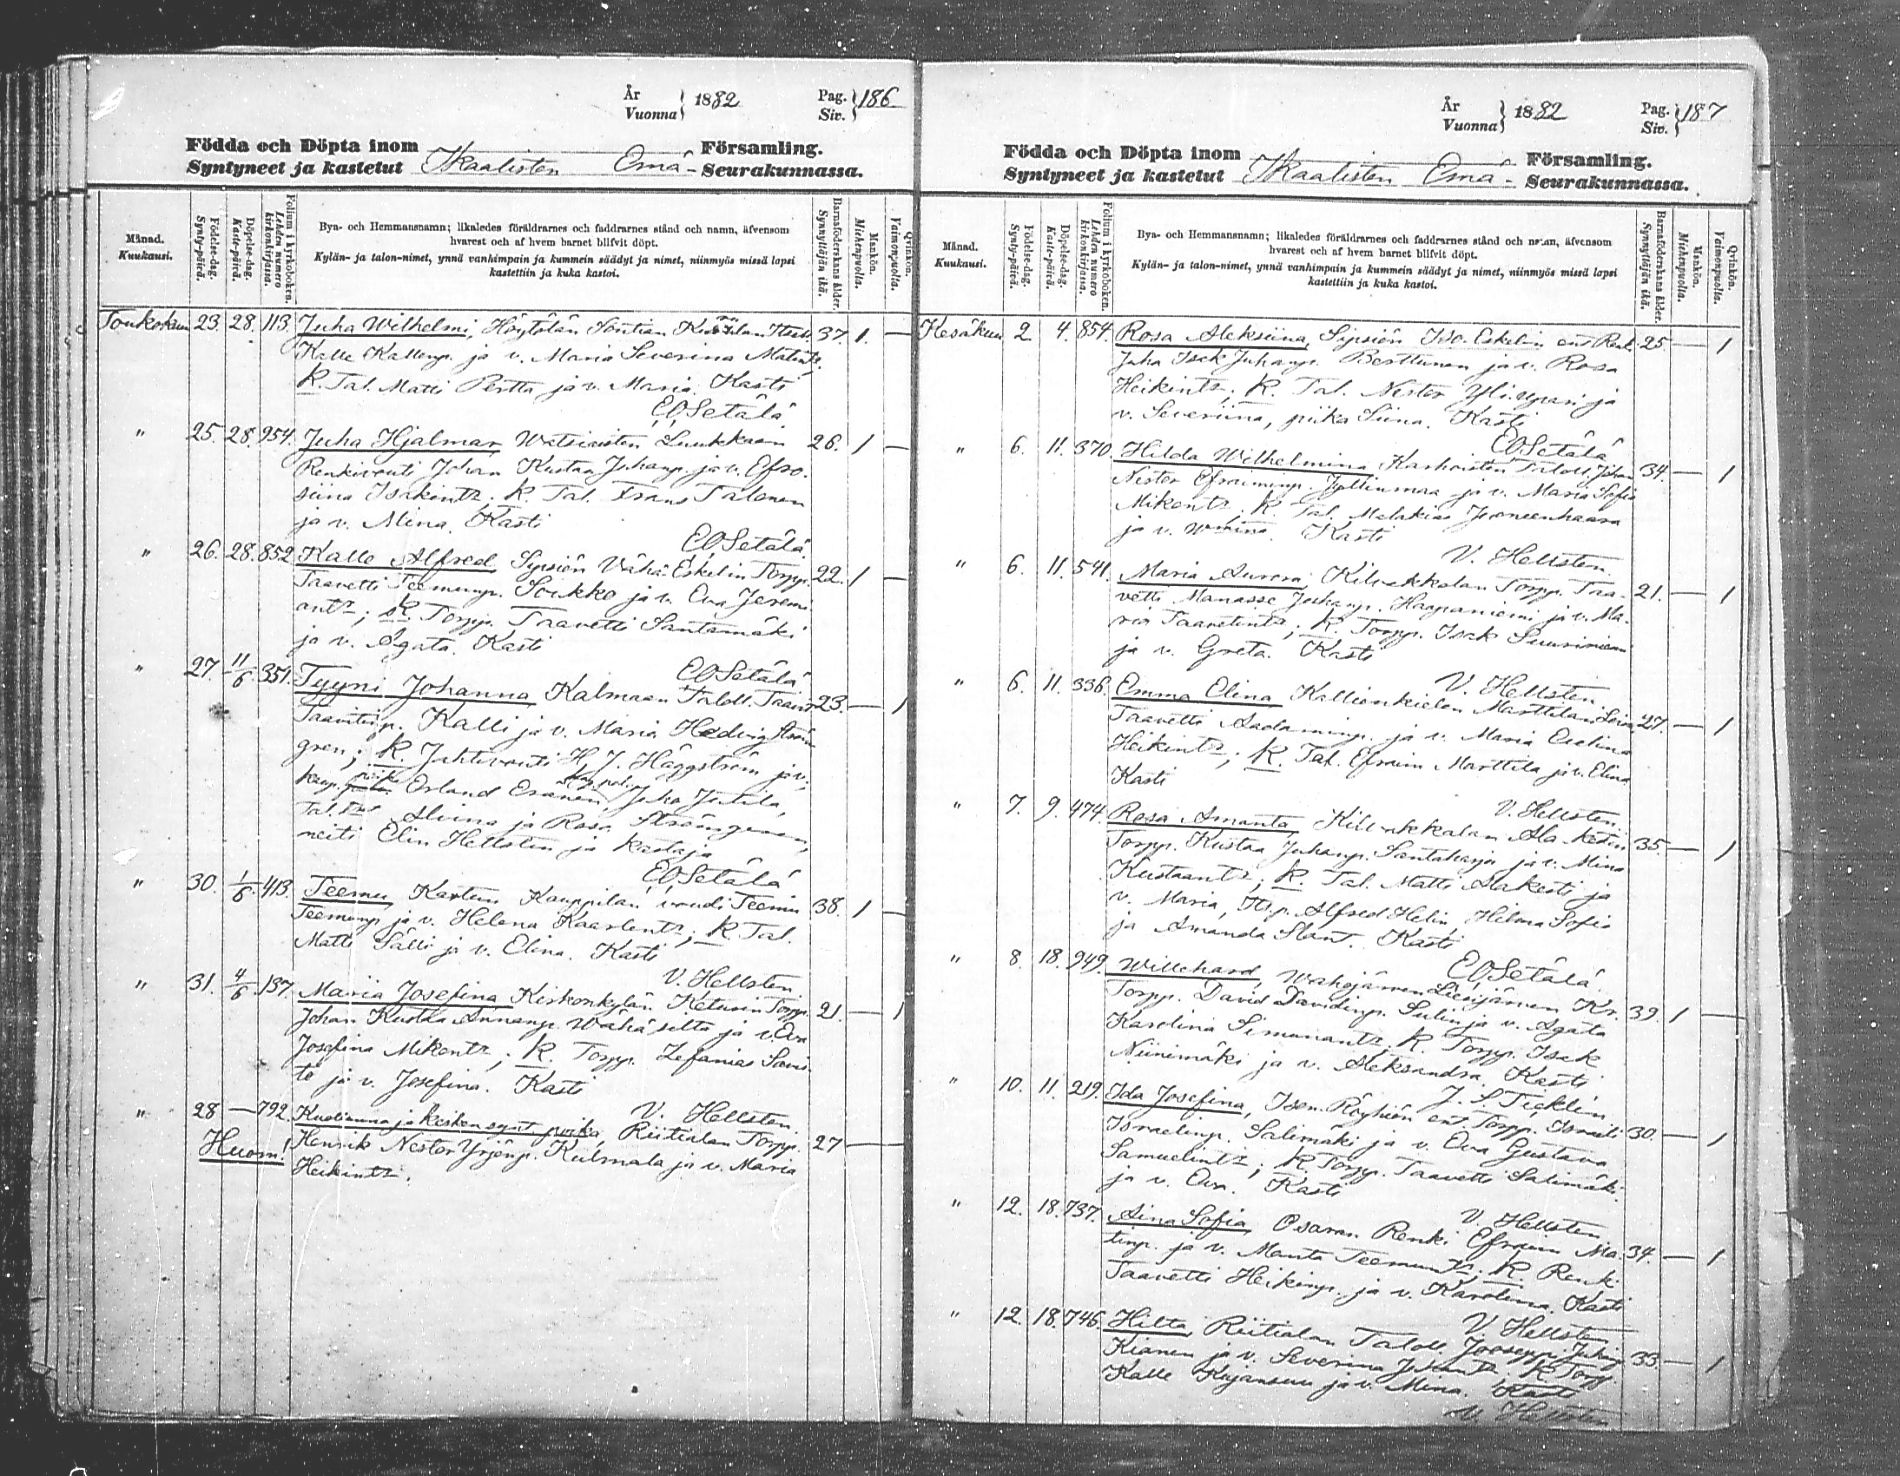 År
Vuonna } 1882 Pag. Siv. } 186
Födda och Döpta inom Församling.
Syntyneet ja kastetut Ikaalisten Emä- Seurakunnassa.
Månad. Kuukausi. Födelse-dag. Synty-päivä. Döpelse-dag. Kaste-päivä. Folium i kyrkoboken. Lehden numero kirkonkirjassa.
Bya- och Hemmansnamn; likaledes föräldrarnes och faddrarnes stånd och namn, äfvensom
hvarest och af hvem barnet blifvit döpt.
Kylän- ja talon-nimet, ynnä vanhimpain ja kummein säädyt ja nimet, niinmyös missä lapsi
kastettiin ja kuka kastoi.
Barnaföderskans ålder. Synnyttäjän ikä. Mankön. Miehenpuolia. Qvinkön. Vaimonpuolia.
Toukokuu 23. 28. 113. Juha Wilhelmi, Höytölän 37. 1. —
Kalle Kallenp. ja v. Maria Severina Matintr.
K. Tal. Matti Pertta ja v. Maria. Kasti
EOSetälä.
" 25. 28. 954. Juha Hjalmar Watsiaisten Luukkaan 26. 1 —
Renkivouti Johan Kustaa Juhanp. ja v. Efro-
siina Isakintr. K. Tal. Frans Talonen
ja v. Mina. Kasti
EOSetälä.
" 26. 28. 852 Kalle Alfred Sipsiön Vähä Eskelin Torpp. 22. 1 —
Taavetti Teemunp. Soukko ja v. Eva Jeremi-
antr; K. Torpp. Taavetti Santamäki
ja v. Agata. Kasti
EOSetälä
" 27. 11/6 351. Tyyni Johanna Kalmaan Taloll. 23. — 1
Taavitinp. Kalli ja v. Maria Hedvig Ström-
gren; K. Jahtivouti H. J. Häggström ja v.,
kaup. Orland Eranen, Juha Jutila,
Alina ja Rosa Strömgren,
neiti Elin Hellsten ja kastaja
EOSetälä
" 30. 1/6 413. Teemu, Kartun Kauppilan vouti Teemu 38. 1 —
Teemunp ja v. Helena Kaarlentr; K. Tal.
Matti Sälli ja v. Elina. Kasti
V. Hellsten.
" 31. 4/6 137. Maria Josefina Kirkonkylän Ketunin Torpp. 21. — 1
Johan Kustaa Annanp. Wähäsilta ja v. Eva
Josefina Mikentr; K. Torpp. Zefanias Savis-
to ja v. Josefina. Kasti
V. Hellsten.
" 28 — 792. Kuolleenna ja keskensynt. poika, Riitialan Torpp. 27 — —
Huom! Henrik Nestor Yrjönp. Kulmala ja v. Maria
Heikintr.
År
Vuonna } 1882 Pag. Siv. } 187
Födda och Döpta inom Församling.
Syntyneet ja kastetut Ikaalisten Emä- Seurakunnassa.
Månad. Kuukausi. Födelse-dag. Synty-päivä. Döpelse-dag. Kaste-päivä. Folium i kyrkoboken. Lehden numero kirkonkirjassa.
Bya- och Hemmansnamn; likaledes föräldrarnes och faddrarnes stånd och namn, äfvensom
hvarest och af hvem barnet blifvit döpt.
Kylän- ja talon-nimet, ynnä vanhimpain ja kummein säädyt ja nimet, niinmyös missä lapsi
kastettiin ja kuka kastoi.
Barnaföderskans ålder. Synnyttäjän ikä. Mankön. Miehenpuolia. Qvinkön. Vaimonpuolia.
Kesäkuu 2 4. 854. Rosa Aleksiina, Sipsiön Iso-Eskelin ent. Renk. 25. — 1
Juha Isak Juhanp. Berttunen ja v. Rosa
Heikintr; K. Tal. Nestor Ylisepari ja
v. Severiina, piika Siina. Kasti
EOSetälä
" 6. 11. 370. Hilda Wilhelmina Karhoisten Taloll. Johan 34. — 1
Nestor Efraiminp. Jyllinmaa ja v. Maria Sofia
Mikentr K. Tal. Malakias Jvoneenhaara
ja v. Kasti
V. Hellsten.
" 6. 11. 541. Maria Aurora, Kilvakkalan Torpp. Taa- 21. — 1
vetti Manasse Juhanp. Haapaniemi ja v. Ma-
ria Taavetintr; K. Torpp. Isak Suuriniemi
ja v. Greta. Kasti
V. Hellsten.
" 6. 11. 336. Emma Elina Kallionkielen Marttilan 27. — 1
Taavetti Aadaminp. ja v. Maria Evelina
Heikintr; K. Tal. Efraim Marttila ja v. Elina
Kasti
V. Hellsten.
" 7. 9. 474. Rosa Amanta Kilvakkalan Ala-Kestin 35. — 1
Torpp. Kustaa Juhanp. Santaharju ja v. Mina
Kustaantr; K. Tal. Matti Alakesti ja
v. Maria, Alfred Helin, Hilma Sofia
ja Amanda Slant. Kasti
EOSetälä.
" 8. 18. 949. Willehard, Wahojärven Liesijärven Kr. 39. 1 —
Torpp. David Davidinp. Sulin ja v. Agata
Karolina Simunantr. K. Torpp. Isak
Niinimäki ja v. Aleksandra, Kasti
J. S Ticklén.
" 10. 11. 219. Ida Josefina, Ison-Röyhiön ent. Torpp. Israeli 30. — 1
Israelinp. Salimäki ja v. Eva Gustava
Samuelintr; K. Torpp. Taavetti Salimäki
ja v. Eva. Kasti
V. Hellsten
" 12. 18. 737. Aina Sofia, Osaran Renki Efraim Ma- 34. — 1
tinp. ja v. Manta Teemuntr; K. Renki
Taavetti Heikinp. ja v. Karolina. Kasti
V. Hellsten
" 12. 18. 746. Hilta, Riitialan Taloll. Joosepp. Juhanp. 33. — 1
Kianen ja v. Severina Juhantr, K. Torpp.
Kalle Kujansuu ja v. Mina. Kasti
V. Hellsten